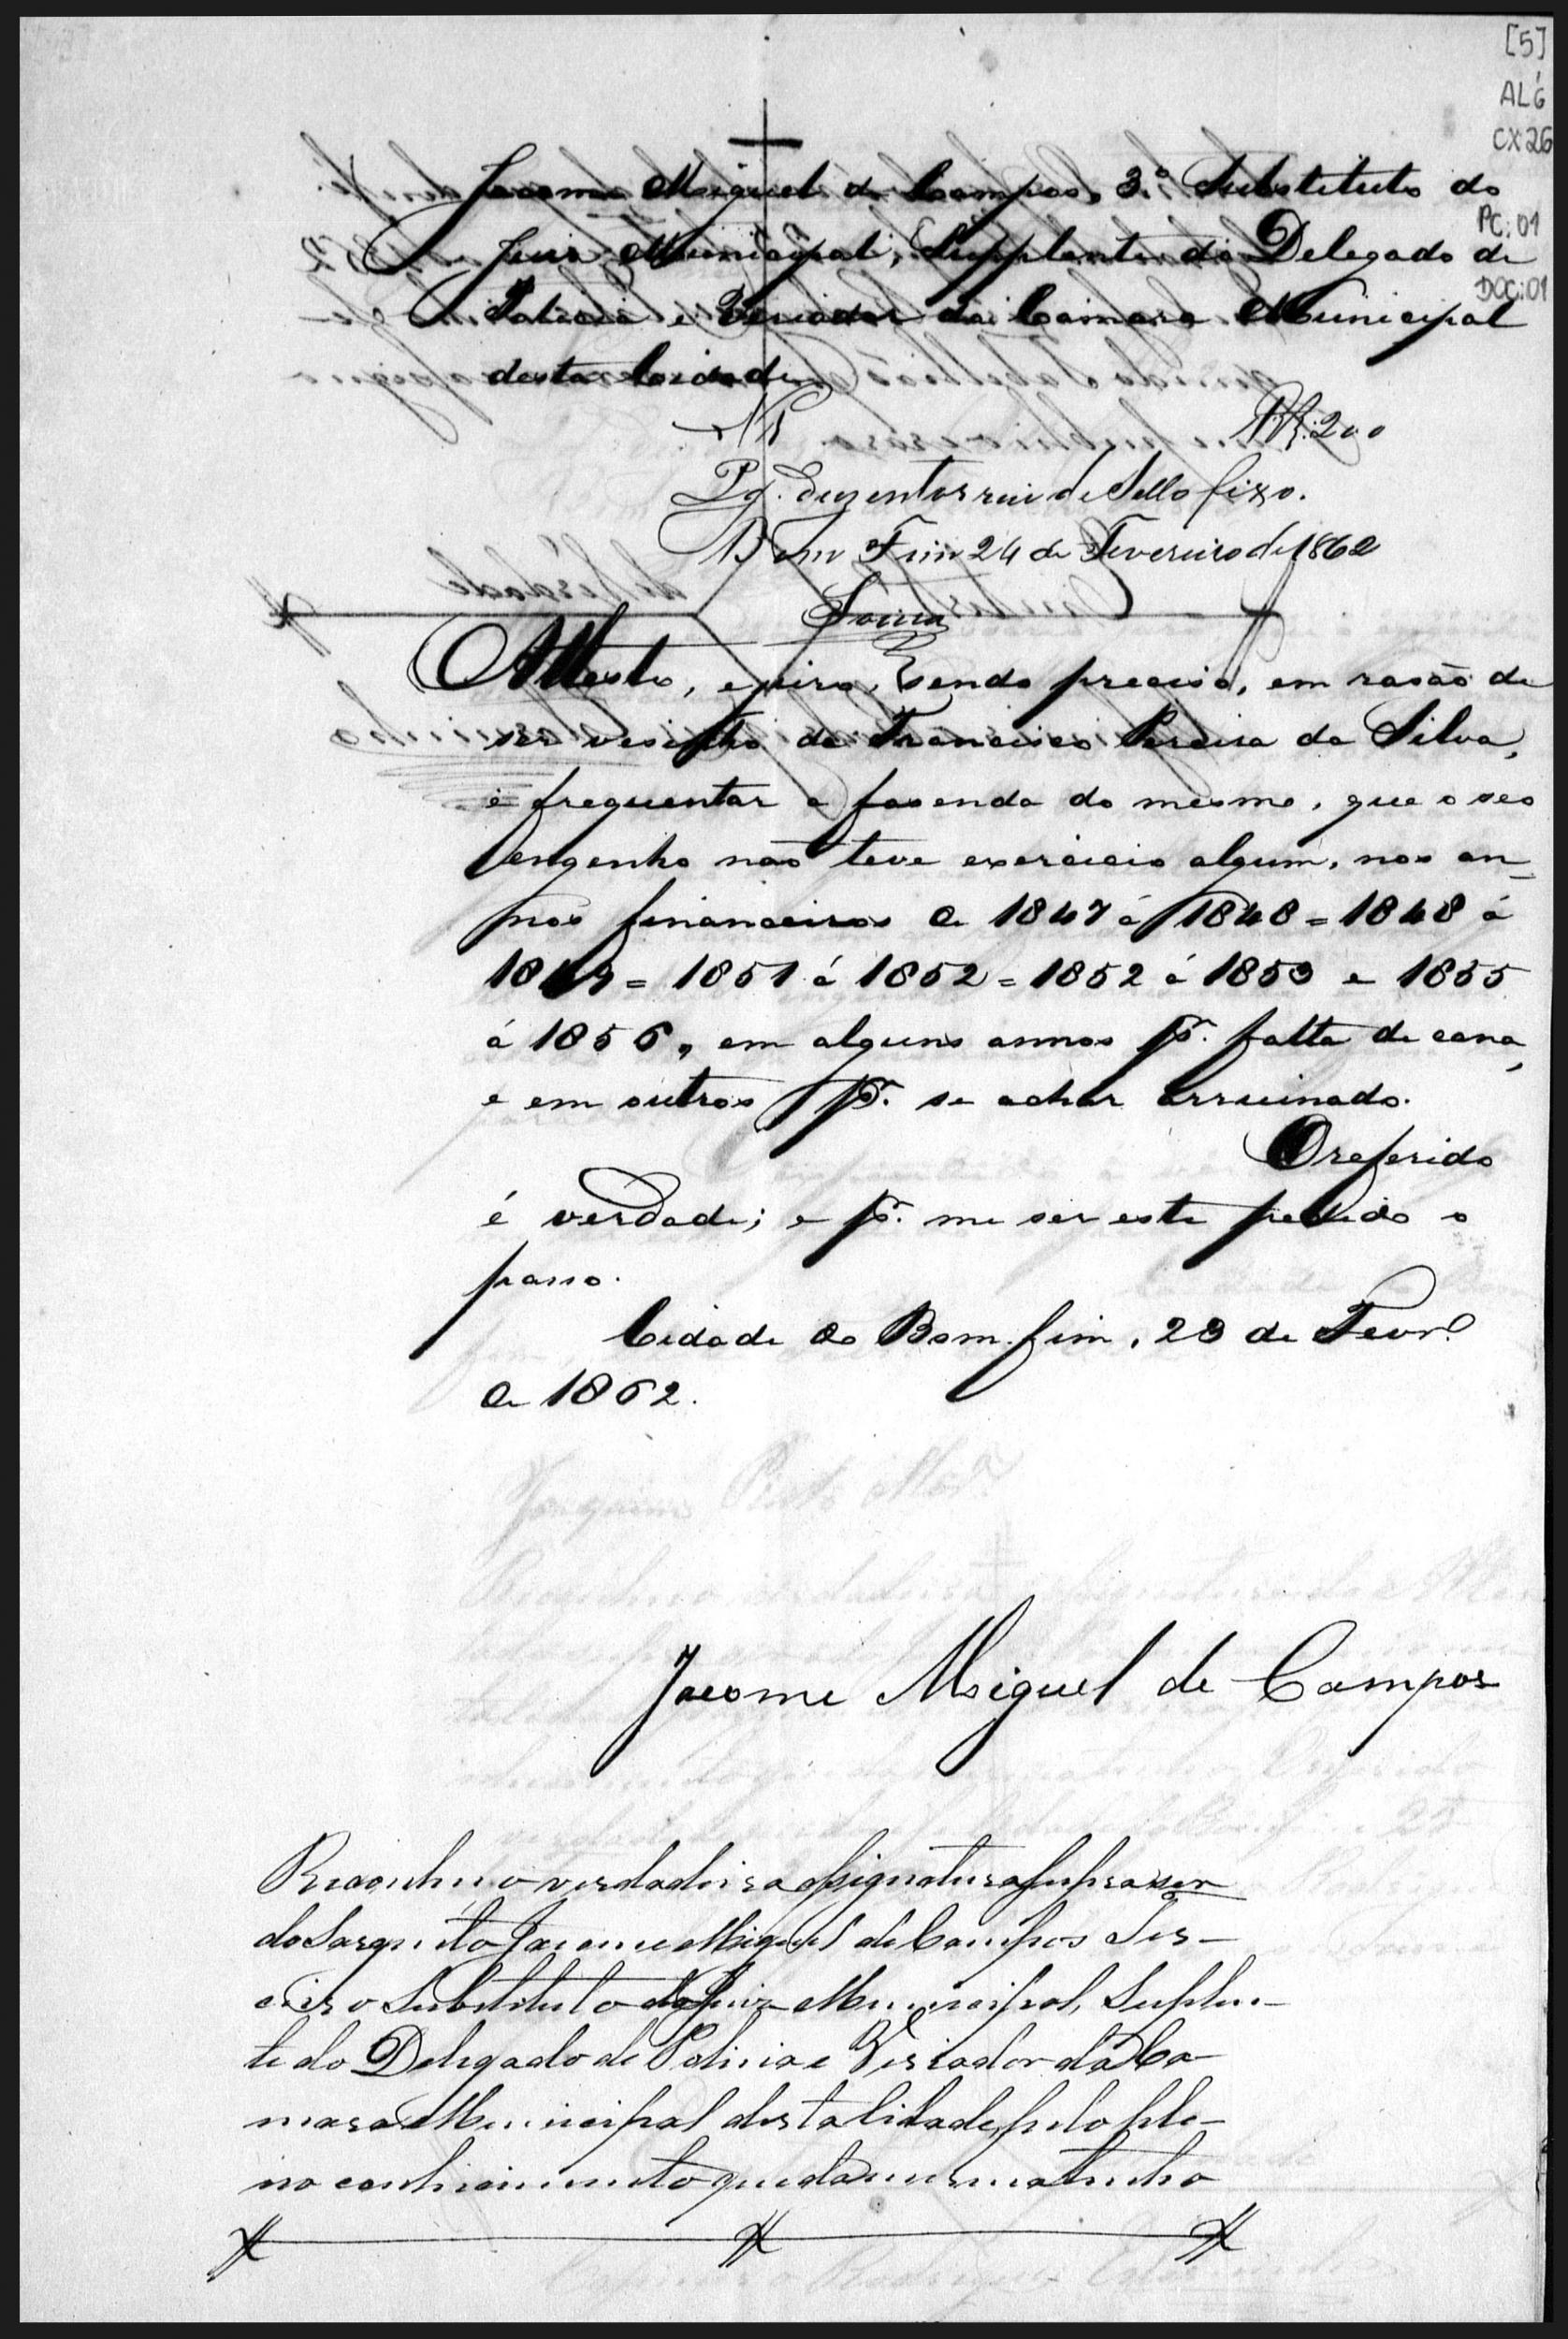 [5]
AL6
CX26
PC:01
DOC:01
Jacome Miguel de Campos, 3.º Substituto do
Juis Municipal, Supplente do Delegado de
Policia e Veriador da Camara Municipal
desta Cidade.
N1 Rs. 200
Pg. duzentos reis de Sello fixo.
Bom Fim 24 de Fevereiro de 1862
Souza
Attesto, e juro, sendo preciso, em rasão de
ser vesinho de Francisco Pereira da Silva,
e frequentar a fasenda do mesmo, que o seo
engenho não teve exercicio algum, nos an-
nos financeiros de 1847 á 1848 = 1848 á
1849 = 1851 á 1852 = 1852 á 1853 e 1855
á 1856, em alguns annos pr. falta de cana,
e em outros pr. se achar arruinado.
O referido
é verdade; e pr. me ser este pedido o
passo.
Cidade do Bom-fim, 23 de Fevr.o
de 1862.
Jacome Miguel de Campos
Reconheco verdadeira assignatura supra ser
do Sargento Jacome Miguel de Campos Ter-
ceiro Substituto do Juiz Municipal, Suplen-
te do Delegado de Policia e Veriador da Ca-
mara Municipal desta Cidade, pelo ple-
no conhecimento que da mesma tenho